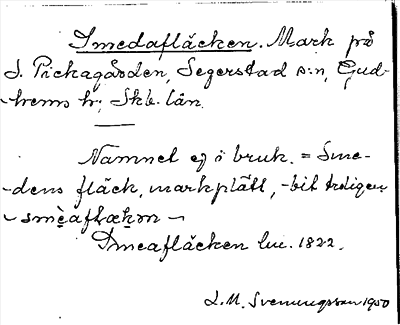 Smedafläcken. Mark på
S. Pickagården, Segerstad s:n, Gud-
-hems h; Skb. län.
Namnet ej i bruk. = Sme-
-dens fläck, markplätt, -bit troligen
- smèaflækɷn -
Smeafläcken luc. 1822.
L.M. Svenungsson 1950